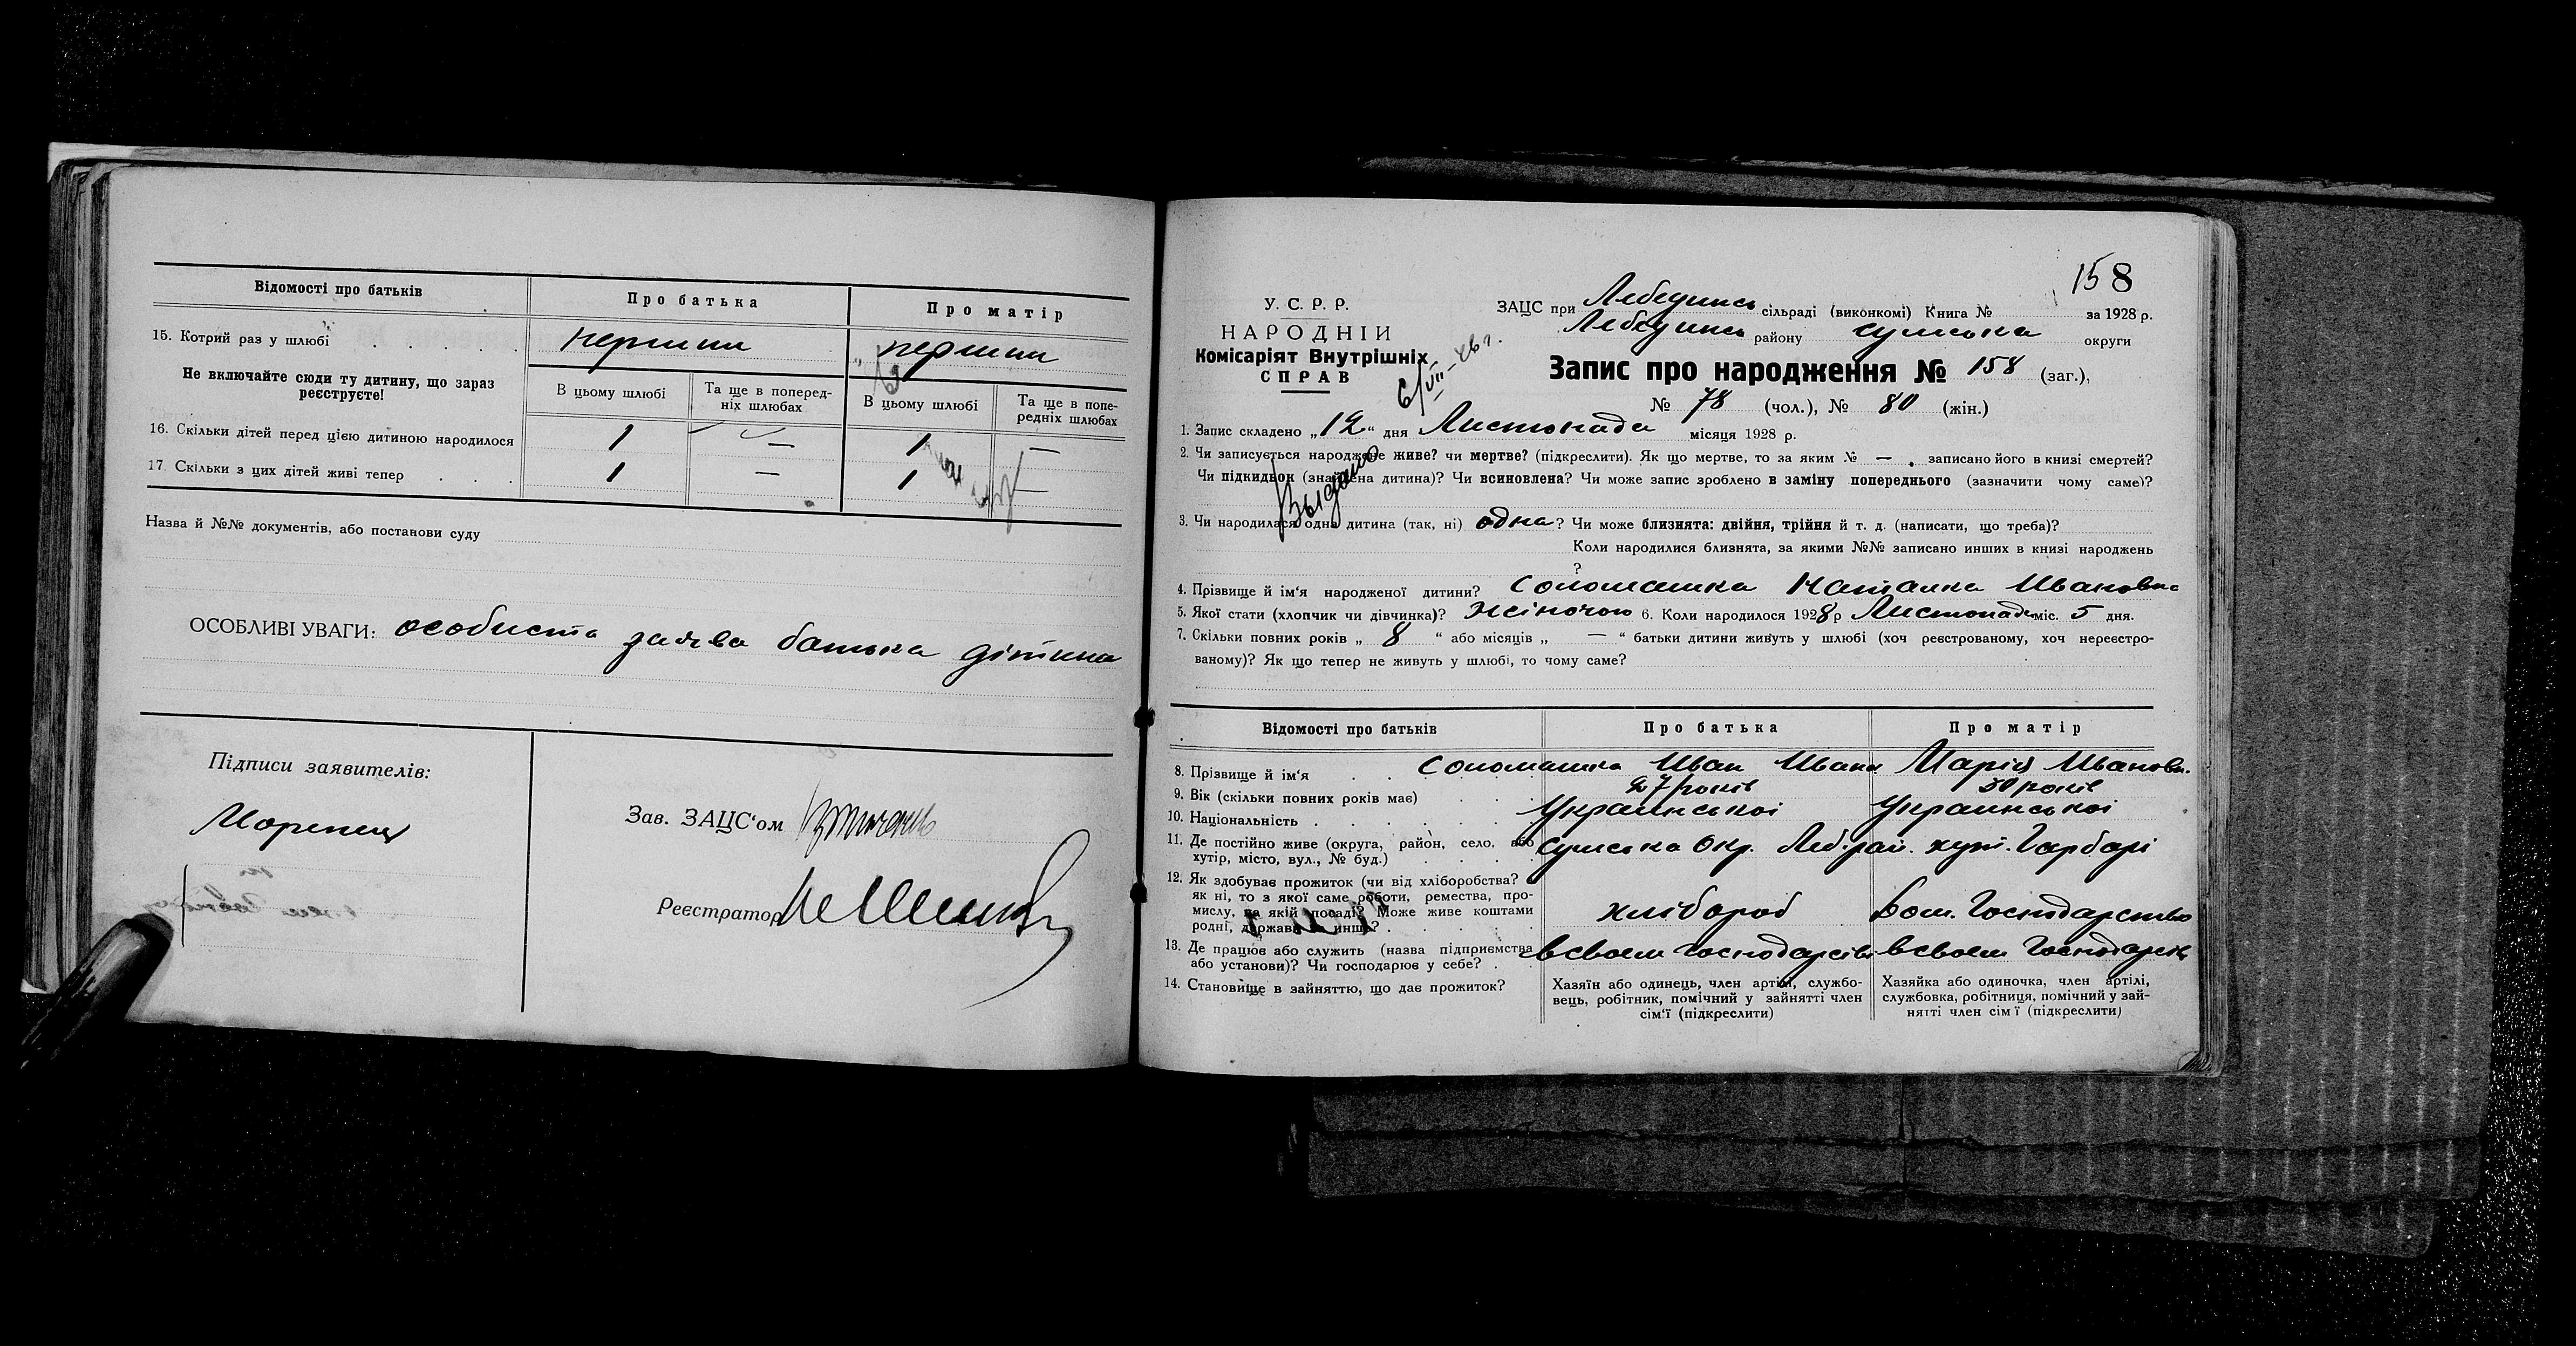 Відомості про батьків
Про батька
Про матір
15. Котрий раз у шлюбі
перший
перший
Не включайте сюди ту дитину, що зараз реєструєте!
В цьому шлюбі
Та ще в поперед-
ніх шлюбах
В цьому шлюбі
Та ще в попе-
редніх шлюбах
16. Скільки дітей перед цією дитиною народилося
1 — 1 —
17. Скільки з цих дітей живі тепер . . .
1 — 1 —
Назва й №№ документів, або постанови суду
ОСОБЛИВІ УВАГИ: особиста заява батька дітини
Підписи заявителів:
Зав. ЗАЦС'ом
Реєстратор
158
У. С. Р. Р.
НАРОДНІЙ
Комісаріят Внутрішніх
СПРАВ
ЗАЦС при Лебединсь сільраді (виконкомі) Книга № за 1928 р.
Лебединсь району сумська округи
Запис про народження № 158 (заг.),
№ 78 (чол.), № 80 (жін.)
Выдано 6/VII-46 г.
1. Запис складено „12“ дня Листопада місяця 1928 р.
2. Чи записується народжене живе? чи мертве? (підкреслити). Як що мертве, то за яким № — . записано його в книзі смертей?
Чи підкидьок (знайдена дитина)? Чи всиновлена? Чи може запис зроблено в заміну попереднього (зазначити чому саме)?
3. Чи народилася одна дитина (так, ні) одна? Чи може близнята: двійня, трійня й т. д. (написати, що треба)?
Коли народилися близнята, за якими №№ записано инших в книзі народжень
?
4. Прізвище й ім'я народженої дитини? Соломашка Наталка Ивановна
5. Якої стати (хлопчик чи дівчинка)? Жіночою 6. Коли народилося 1928 р Листопада міс. 5 дня.
7. Скільки повних років „ 8 “ або місяців „ — “ батьки дитини живуть у шлюбі (хоч реєстрованому, хоч нереєстро-
ваному)? Як що тепер не живуть у шлюбі, то чому саме?
Відомості про батьків
Про батька
Про матір
8. Прізвище й ім'я . . Соломашка Иван Иван Марія Ивановн.
9. Вік (скільки повних років має) . . . 27 років 30 років
10. Національність . . . . . . Украинськоі Украинськоі
11. Де постійно живе (округа, район, село, або
хутір, місто, вул., № буд.) . . . .
Сумська Окр. Леб. рай. хут. Гарбарі
12. Як здобуває прожиток (чи від хліборобства?
як ні, то з якої саме роботи, ремества, про-
мислу, на якій посаді? Може живе коштами
родні, держави й инш.? . . . . . .
хлібороб
Дом. Господарство
13. Де працює або служить (назва підприємства
або установи)? Чи господарює у себе? .
в своем господарстві
в своем Господарств
14. Становище в зайняттю, що дає прожиток?
Хазяїн або одинець, член артілі, службо-
вець, робітник, помічний у зайнятті член
сім'ї (підкреслити)
Хазяйка або одиночка, член артілі,
службовка, робітниця, помічний у зай-
нятті член сім'ї (підкреслити)